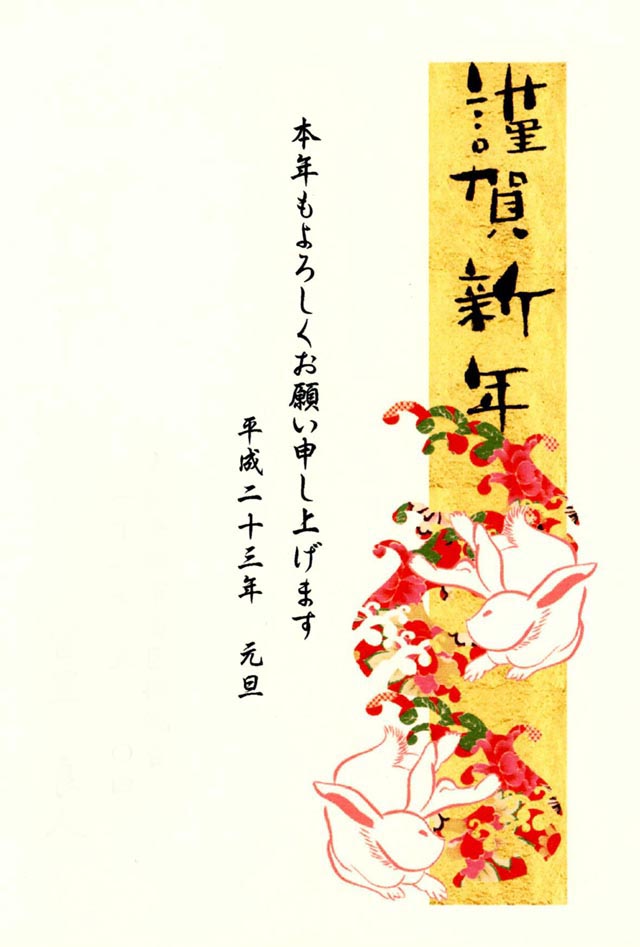 謹賀新年
本年もよろしくお願い申し上げます
平成二十三年　元旦